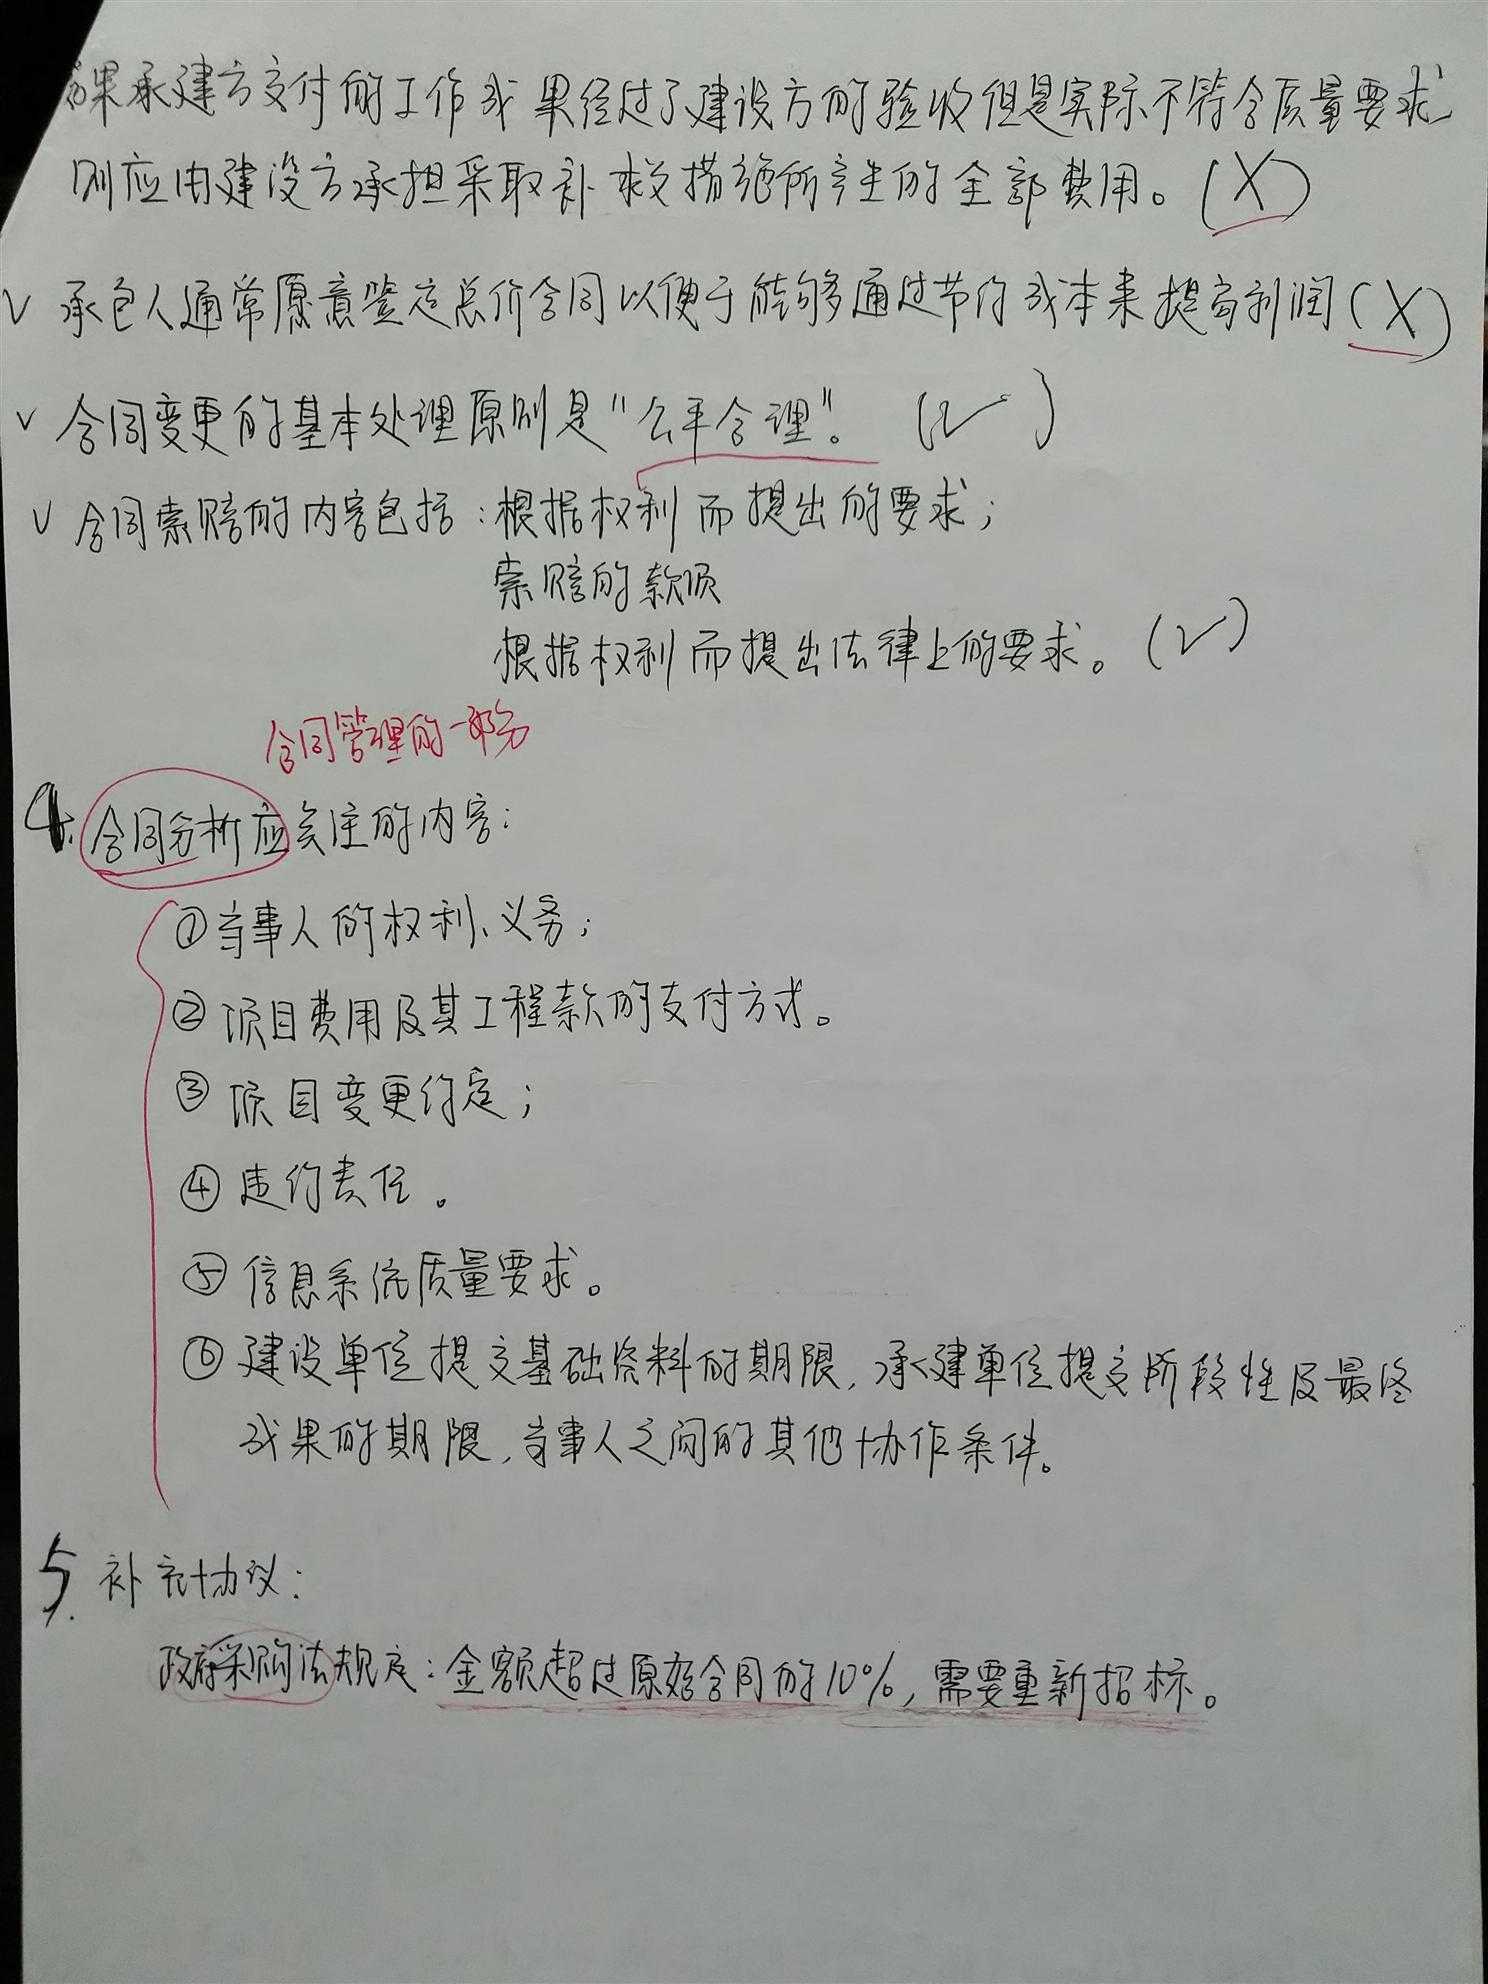 如果承建方交付的工作成果经过了建设方的验收但是实际不符合质量要求,
则应由建设方承担采取补救措施所产生的全部费用。(X)
∨ 承包人通常愿意签定总价合同以便于能够多通过节约成本来提高利润(X)
∨ 合同变更的基本处理原则是"公平合理"。(✓)
∨ 合同索赔的内容包括:根据权利而提出的要求;
索赔的款项
根据权利而提出法律上的要求。(✓)
合同管理的一部分
4. 合同分析应关注的内容:
①当事人的权利、义务;
②项目费用及其工程款的支付方式。
③项目变更约定;
④违约责任。
⑤信息系统质量要求。
⑥建设单位提交基础资料的期限,承建单位提交阶段性及最终
成果的期限,当事人之间的其他协作条件。
5. 补充协议:
政府采购法规定:金额超过原始合同的10%,需要重新招标。